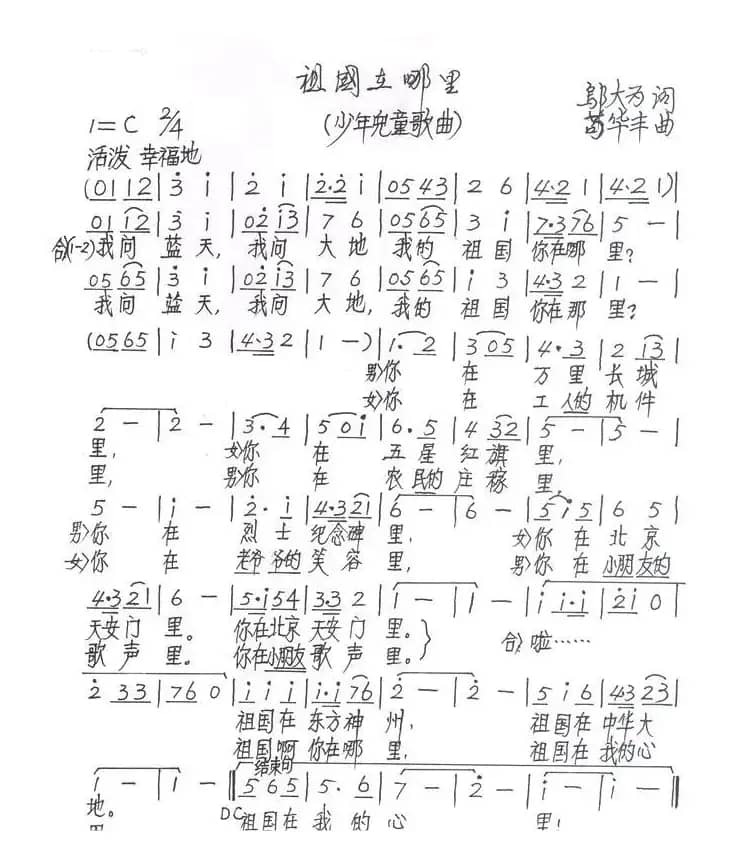 祖國在哪里
邬大为 词
1=C 2/4
(少年兒童歌曲)
华丰曲
活泼 幸福地
(0112|3 i|2 i|2·2 i|0543|2 6|4·2 1|4·2 1)|
01 i2|3 i|02 i3|7 6|0565|3 i|7·376|5 -|
合(1-2)我问 蓝天,我问 大地 我的 祖国 你在哪 里?
0565|3 i|02 i3|7 6|0565|i 3|4·3 2|1 -|
我问 蓝天,我问 大地,我的 祖国 你在那 里?
(0565|i 3|4·3 2|1 -)|1· 2|3 05|4· 3|2 i3|
男)你 在 万里 长城
女)你 在 工人的 机件
2 -|2 -|3· 4|5 0i|6· 5|4 32|5 -|5 -|
里, 女)你 在 五星 红旗 里,
里, 男)你 在 农民的 庄稼 里
5 -|i -|2· i|4·321|6 -|6 -|5 i 5|6 5|
男)你 在 烈士 纪念碑 里, 女)你 在 北京
女)你 在 老爷爷的 笑容 里, 男)你 在 小朋友的
4·321|6 -|5·i54|3·3 2|1 -|1 -|i i·i|2i 0|
天安门 里。 你在北京 天安门 里。
合)啦……
歌声 里。 你在小朋友 歌声 里。
2 33|76 0|i i i|i·i 76|2 -|2 -|5 i 6|43 23|
祖国在 东方神 州, 祖国在 中华大
祖国啊 你在哪 里, 祖国在 我的心
结束句
i -|1 -‖5 6 5|5· 6|7 -|2 -|i -|i -‖
地。 DC 祖国在 我的 心 里!